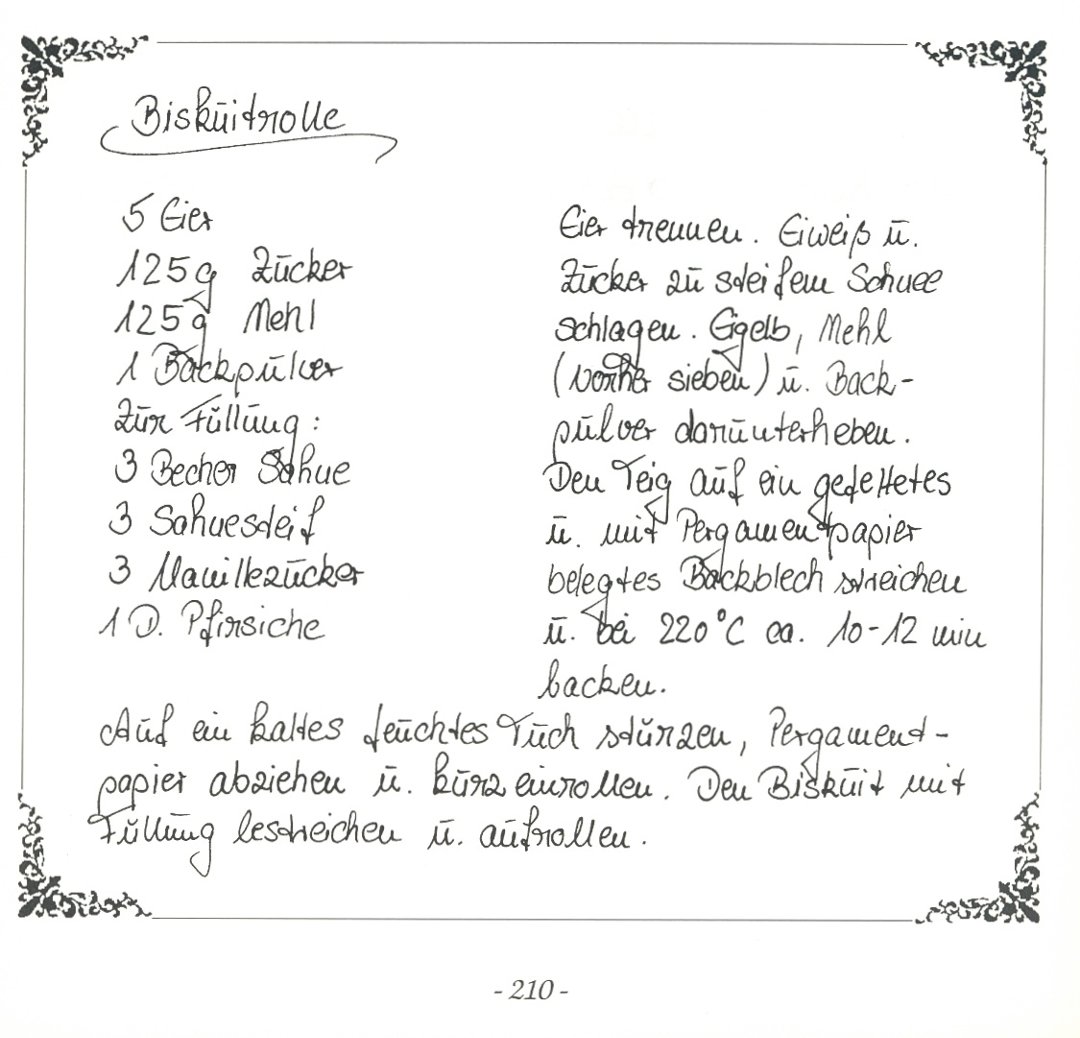 Biskuitrolle
5 Eier
125g Zucker
125g Mehl
1 Backpulver
Zur Füllung:
3 Becher Sahne
3 Sahnesteif
3 Vanillezucker
1 D. Pfirsiche
Eier trennen. Eiweiß u.
Zucker zu steifem Schnee
schlagen. Eigelb, Mehl
(vorher sieben) u. Back-
pulver darunterheben.
Den Teig auf ein gefettetes
u. mit Pergamentpapier
belegtes Backblech streichen
u. bei 220°C ca. 10-12 min
backen.
Auf ein kaltes feuchtes Tuch stürzen, Pergament-
papier abziehen u. kurz einrollen. Den Biskuit mit
Füllung bestreichen u. aufrollen.
- 210 -